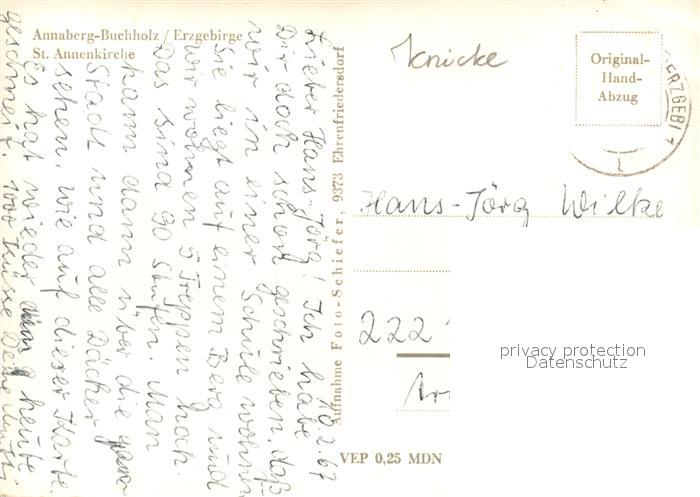 Annaberg-Buchholz / Erzgebirge
St. Annenkirche
Knicke
Original-
Hand-
Abzug
ERZGEB 1
1
10.2.67
Lieber Hans-Jörg! Ich habe
Dir doch schon geschrieben, daß
wir in einer Schule wohnen
Sie liegt auf einem Berg und
wir wohnen 5 Treppen hoch.
Das sind 90 Stufen. Man
kann dann über die ganze
Stadt und alle Dächer
sehen, wie auf dieser Karte.
Es hat wieder heute
geschneit. 1000 Küsse Deine Mutti
Aufnahme Foto-Schiefer, 9373 Ehrenfriedersdorf
Hans-Jörg Wilke
222
VEP 0,25 MDN
privacy protection
Datenschutz